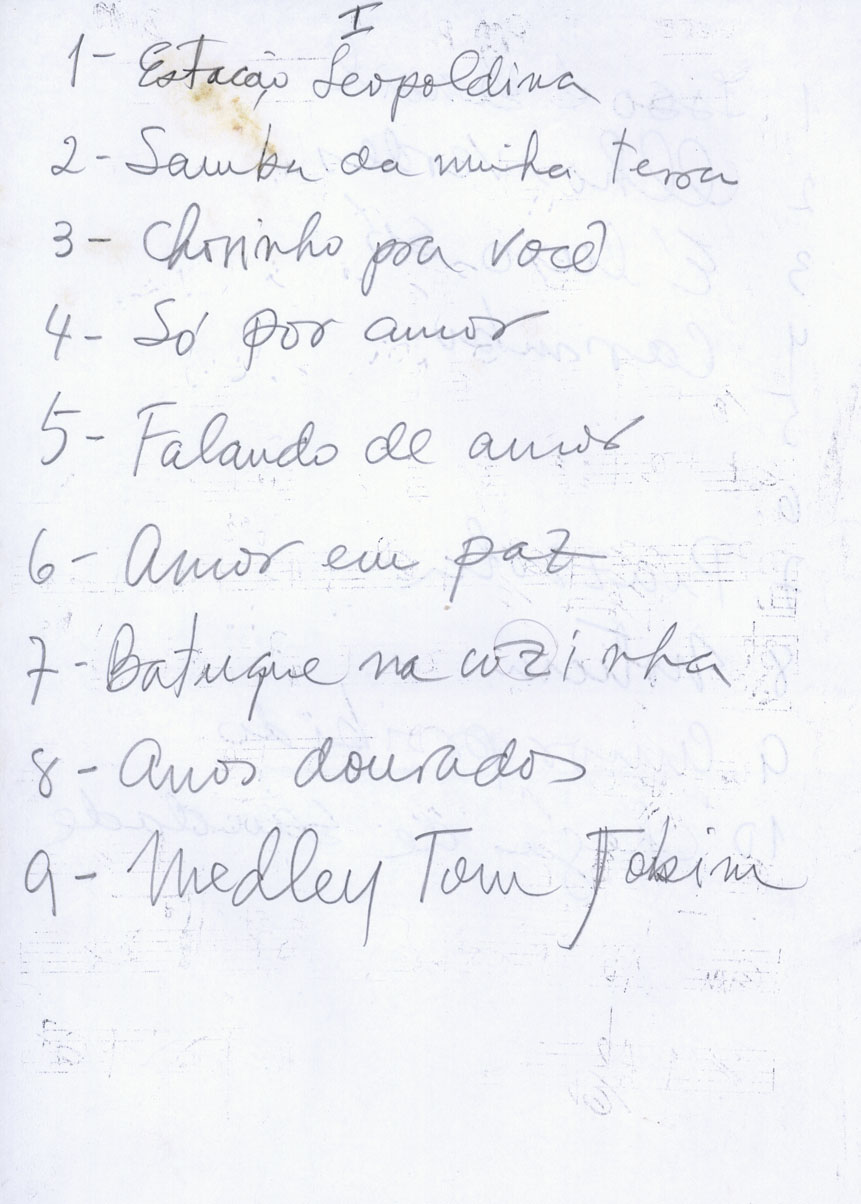 I
1- Estação Leopoldina
2- Samba da minha terra
3- Chorinho pra você
4- Só por amor
5- Falando de amor
6- Amor em paz
7- Batuque na cozinha
8- Anos dourados
9- Medley Tom Jobim